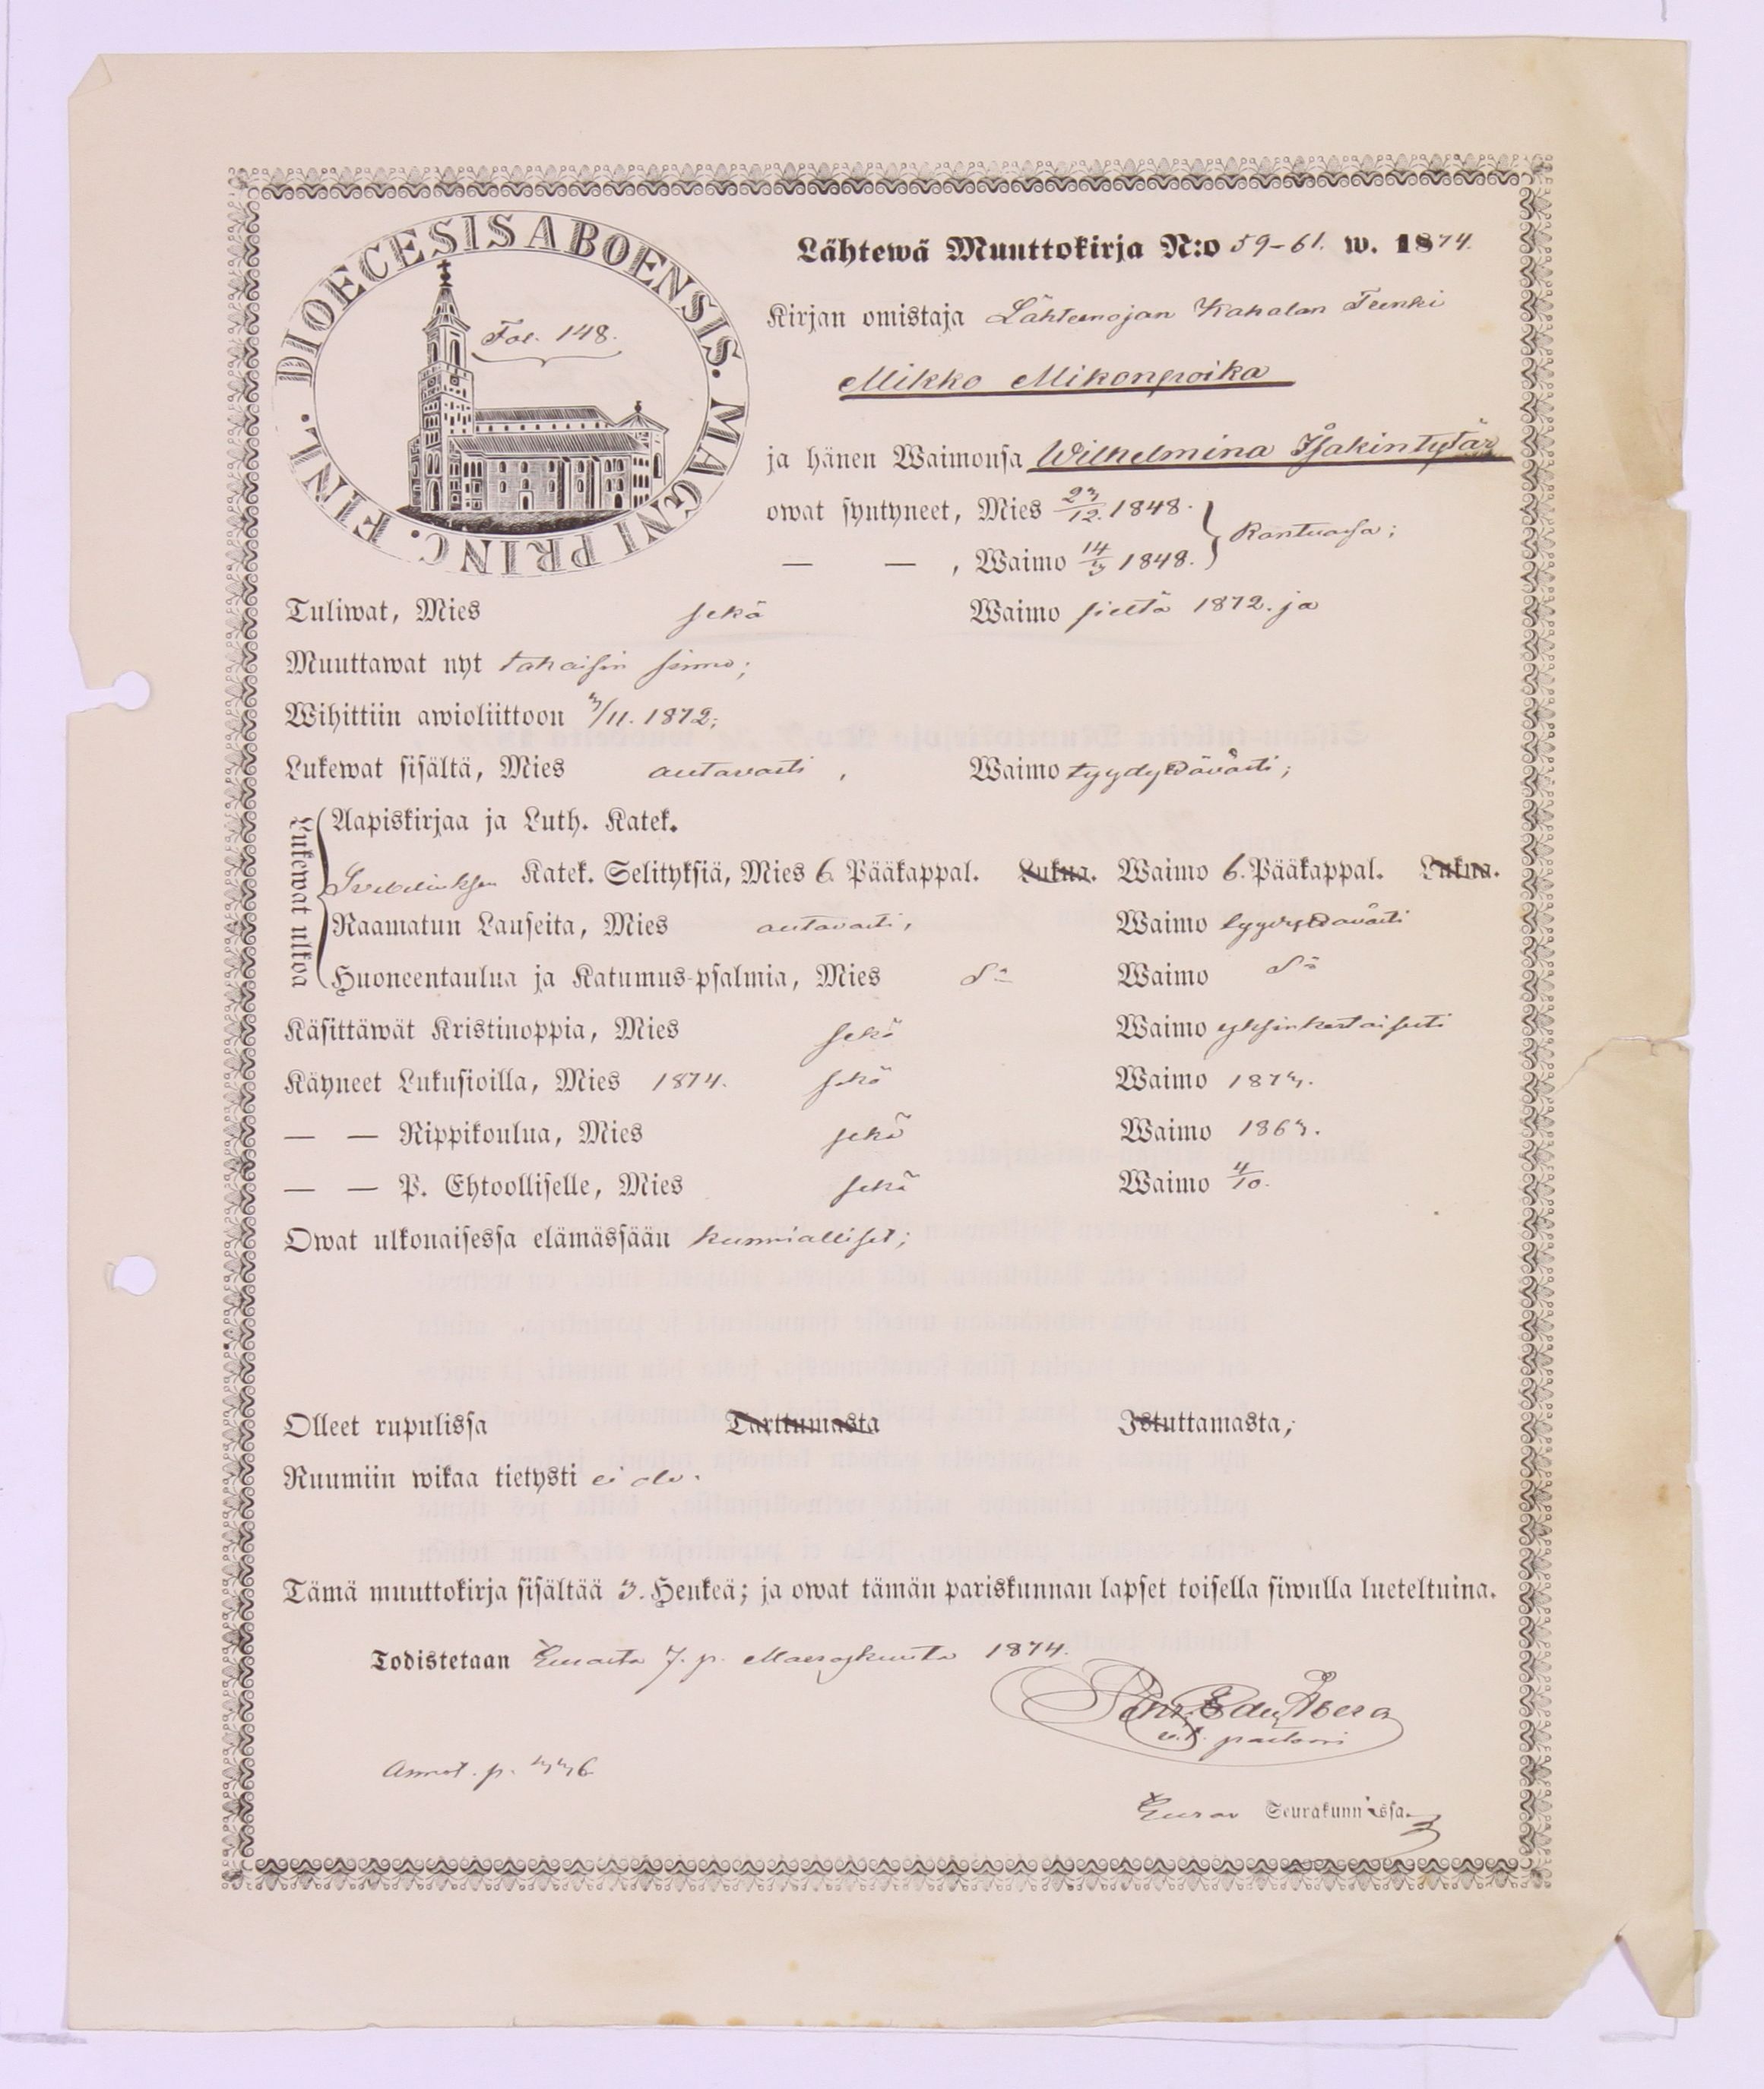 DIOECESIS ABOENSIS. MAGNI PRINC. FINL.
Fol. 148.
Lähtewä Muuttokirja N:o 59-61. w. 1874.
Kirjan omistaja Lähteenojan Kahalan Renki
Mikko Mikonpoika
ja hänen Waimonsa Wilhelmina Isakintytär
owat syntyneet, Mies 23/12. 1848.
— — , Waimo 14/3 1848. } Kantuassa;
Tuliwat, Mies sekä Waimo sieltä 1872. ja
Muuttawat nyt takaisin sinne;
Wihittiin awioliittoon 3/11. 1872;
Lukewat sisältä, Mies auttavasti, Waimo tyydyttäväisti;
Lukewat ulkoa
Aapiskirjaa ja Luth. Katek.
Svebeliuksen Katek. Selityksiä, Mies 6 Pääkappal. Lukua. Waimo 6. Pääkappal. Lukua.
Raamatun Lauseita, Mies auttavasti, Waimo tyydyttäväisti
Huoneentaulua ja Katumus-psalmia, Mies d:o Waimo d:o
Käsittäwät Kristinoppia, Mies sekä Waimo yksinkertaisesti
Käyneet Lukusioilla, Mies 1874. sekä Waimo 1873.
— — Rippikoulua, Mies sekä Waimo 1863.
— — P. Ehtoolliselle, Mies sekä Waimo 4/10.
Owat ulkonaisessa elämässään kunnialliset;
Olleet rupulissa Tarttumasta Istuttamasta,;
Ruumiin wikaa tietysti ei ole.
Tämä muuttokirja sisältää 3. Henkeä; ja owat tämän pariskunnan lapset toisella siwulla lueteltuina.
Todistetaan Eurasta 7. p. Marraskuuta 1874.
v.t. pastori
Annot. p. 336
Euran Seurakunnassa.